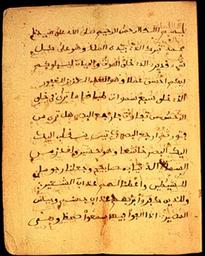 بسم الله الرحمن الرحيم صلى الله على سيدنا
محمد تبرك الذي بيده الملك وهو على كل
شيء قدير الذي خلق الموت والحيوة ليبلوكم
ايكم احسن عملا وهو العزيز الغفور
الذي خلق سبع سموات طباقا ما ترى في خلق
الرحمن من تفوت فارجع البصر هل ترى من
فطور ثم ارجع البصر كرتين ينقلب اليك
البصر خاسئا وهو حسير ولقد زينا
السماء الدنيا بمصبيح وجعلنها رجوما
للشيطين واعتدنا لهم عذاب السعير
وللذين كفروا بربهم عذاب جهنم وبيس
المصير اذا القوا فيها سمعوا وهي